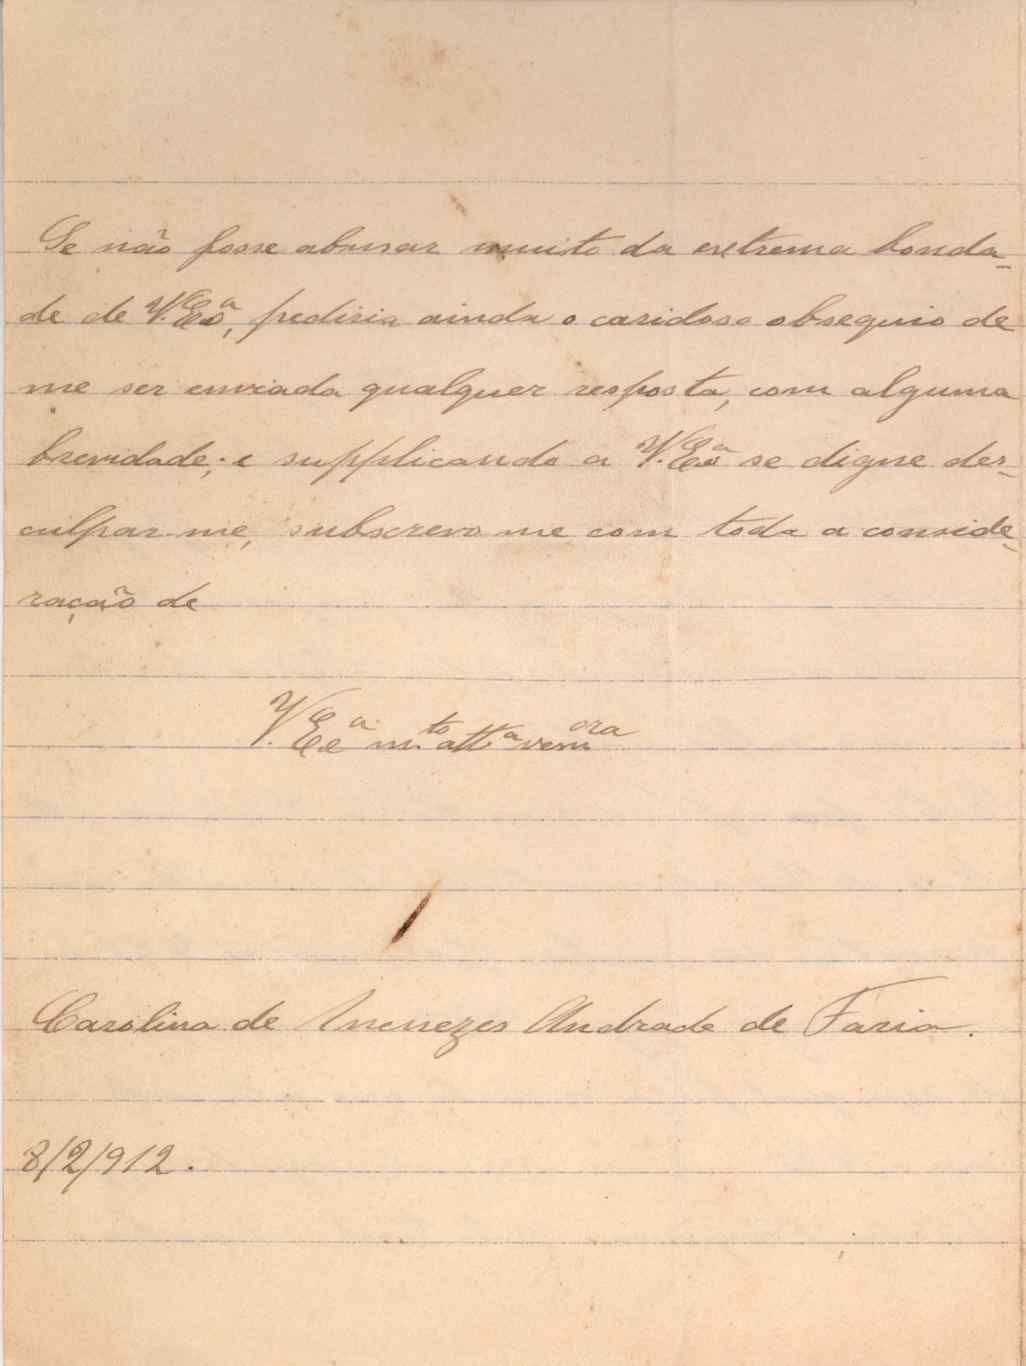 Se não fosse abusar muito da extrema bonda-
de de V. Exª, pediria ainda o caridoso obsequio de
me ser enviada qualquer resposta, com alguma
brevidade; e supplicando a V. Exª se digne des-
culpar-me, subscrevo-me com toda a conside-
ração de
V. Exª m.to attª venora
Carolina de Menezes Andrade de Faria.
8/2/912.